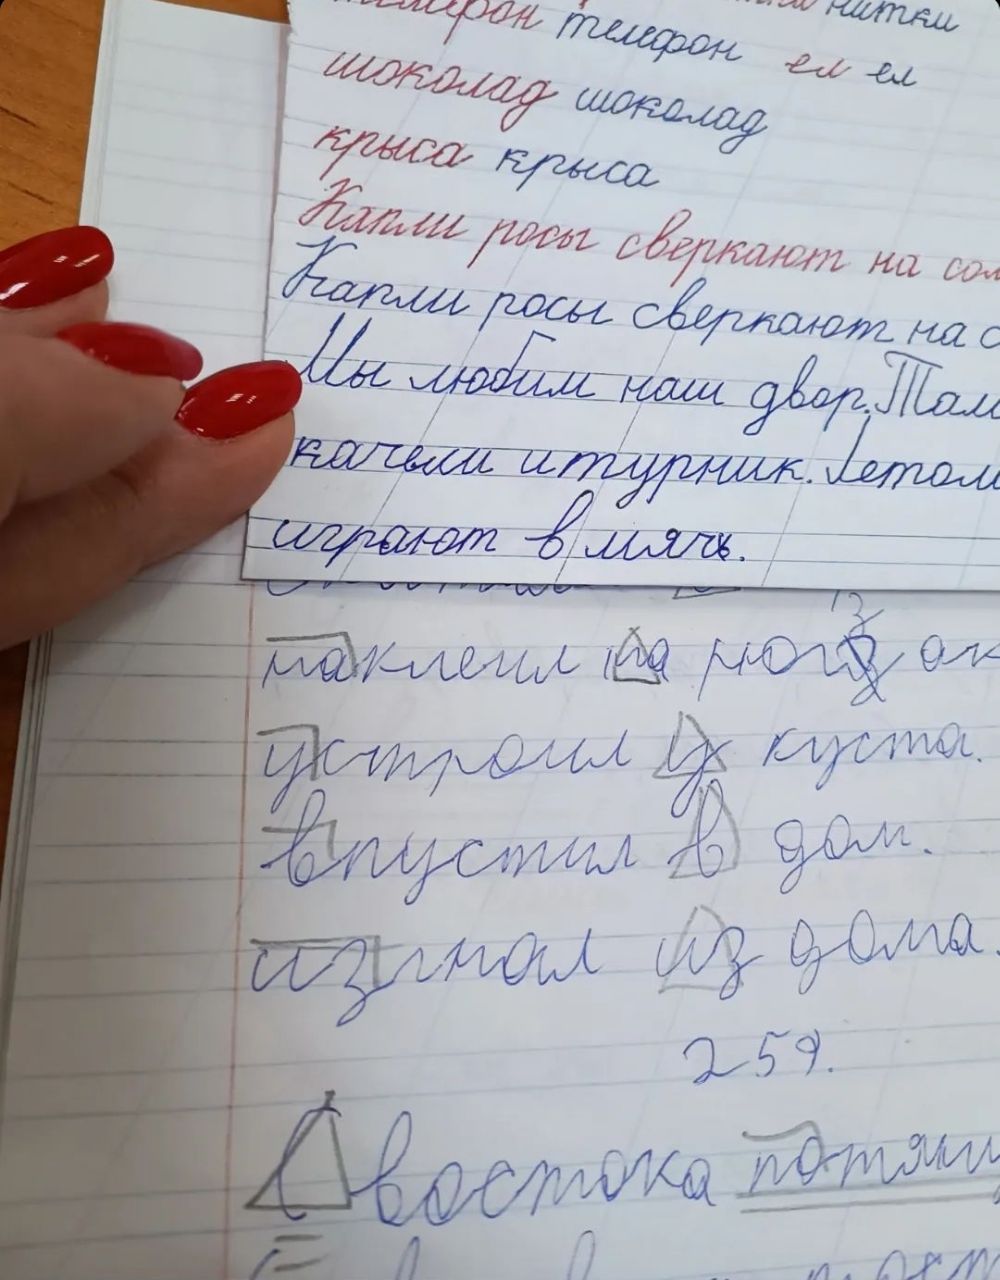 телефон телефон ел ел
нитки
шоколад шоколад
крыса крыса
Капли росы сверкают на сол
Капли росы сверкают на с
Мы любим наш двор. Там
качели и турник. Летом
играют в мячь.
наклеил на
устроил у куста.
впустил в дом.
изгнал из дома.
259.
С востока потяну